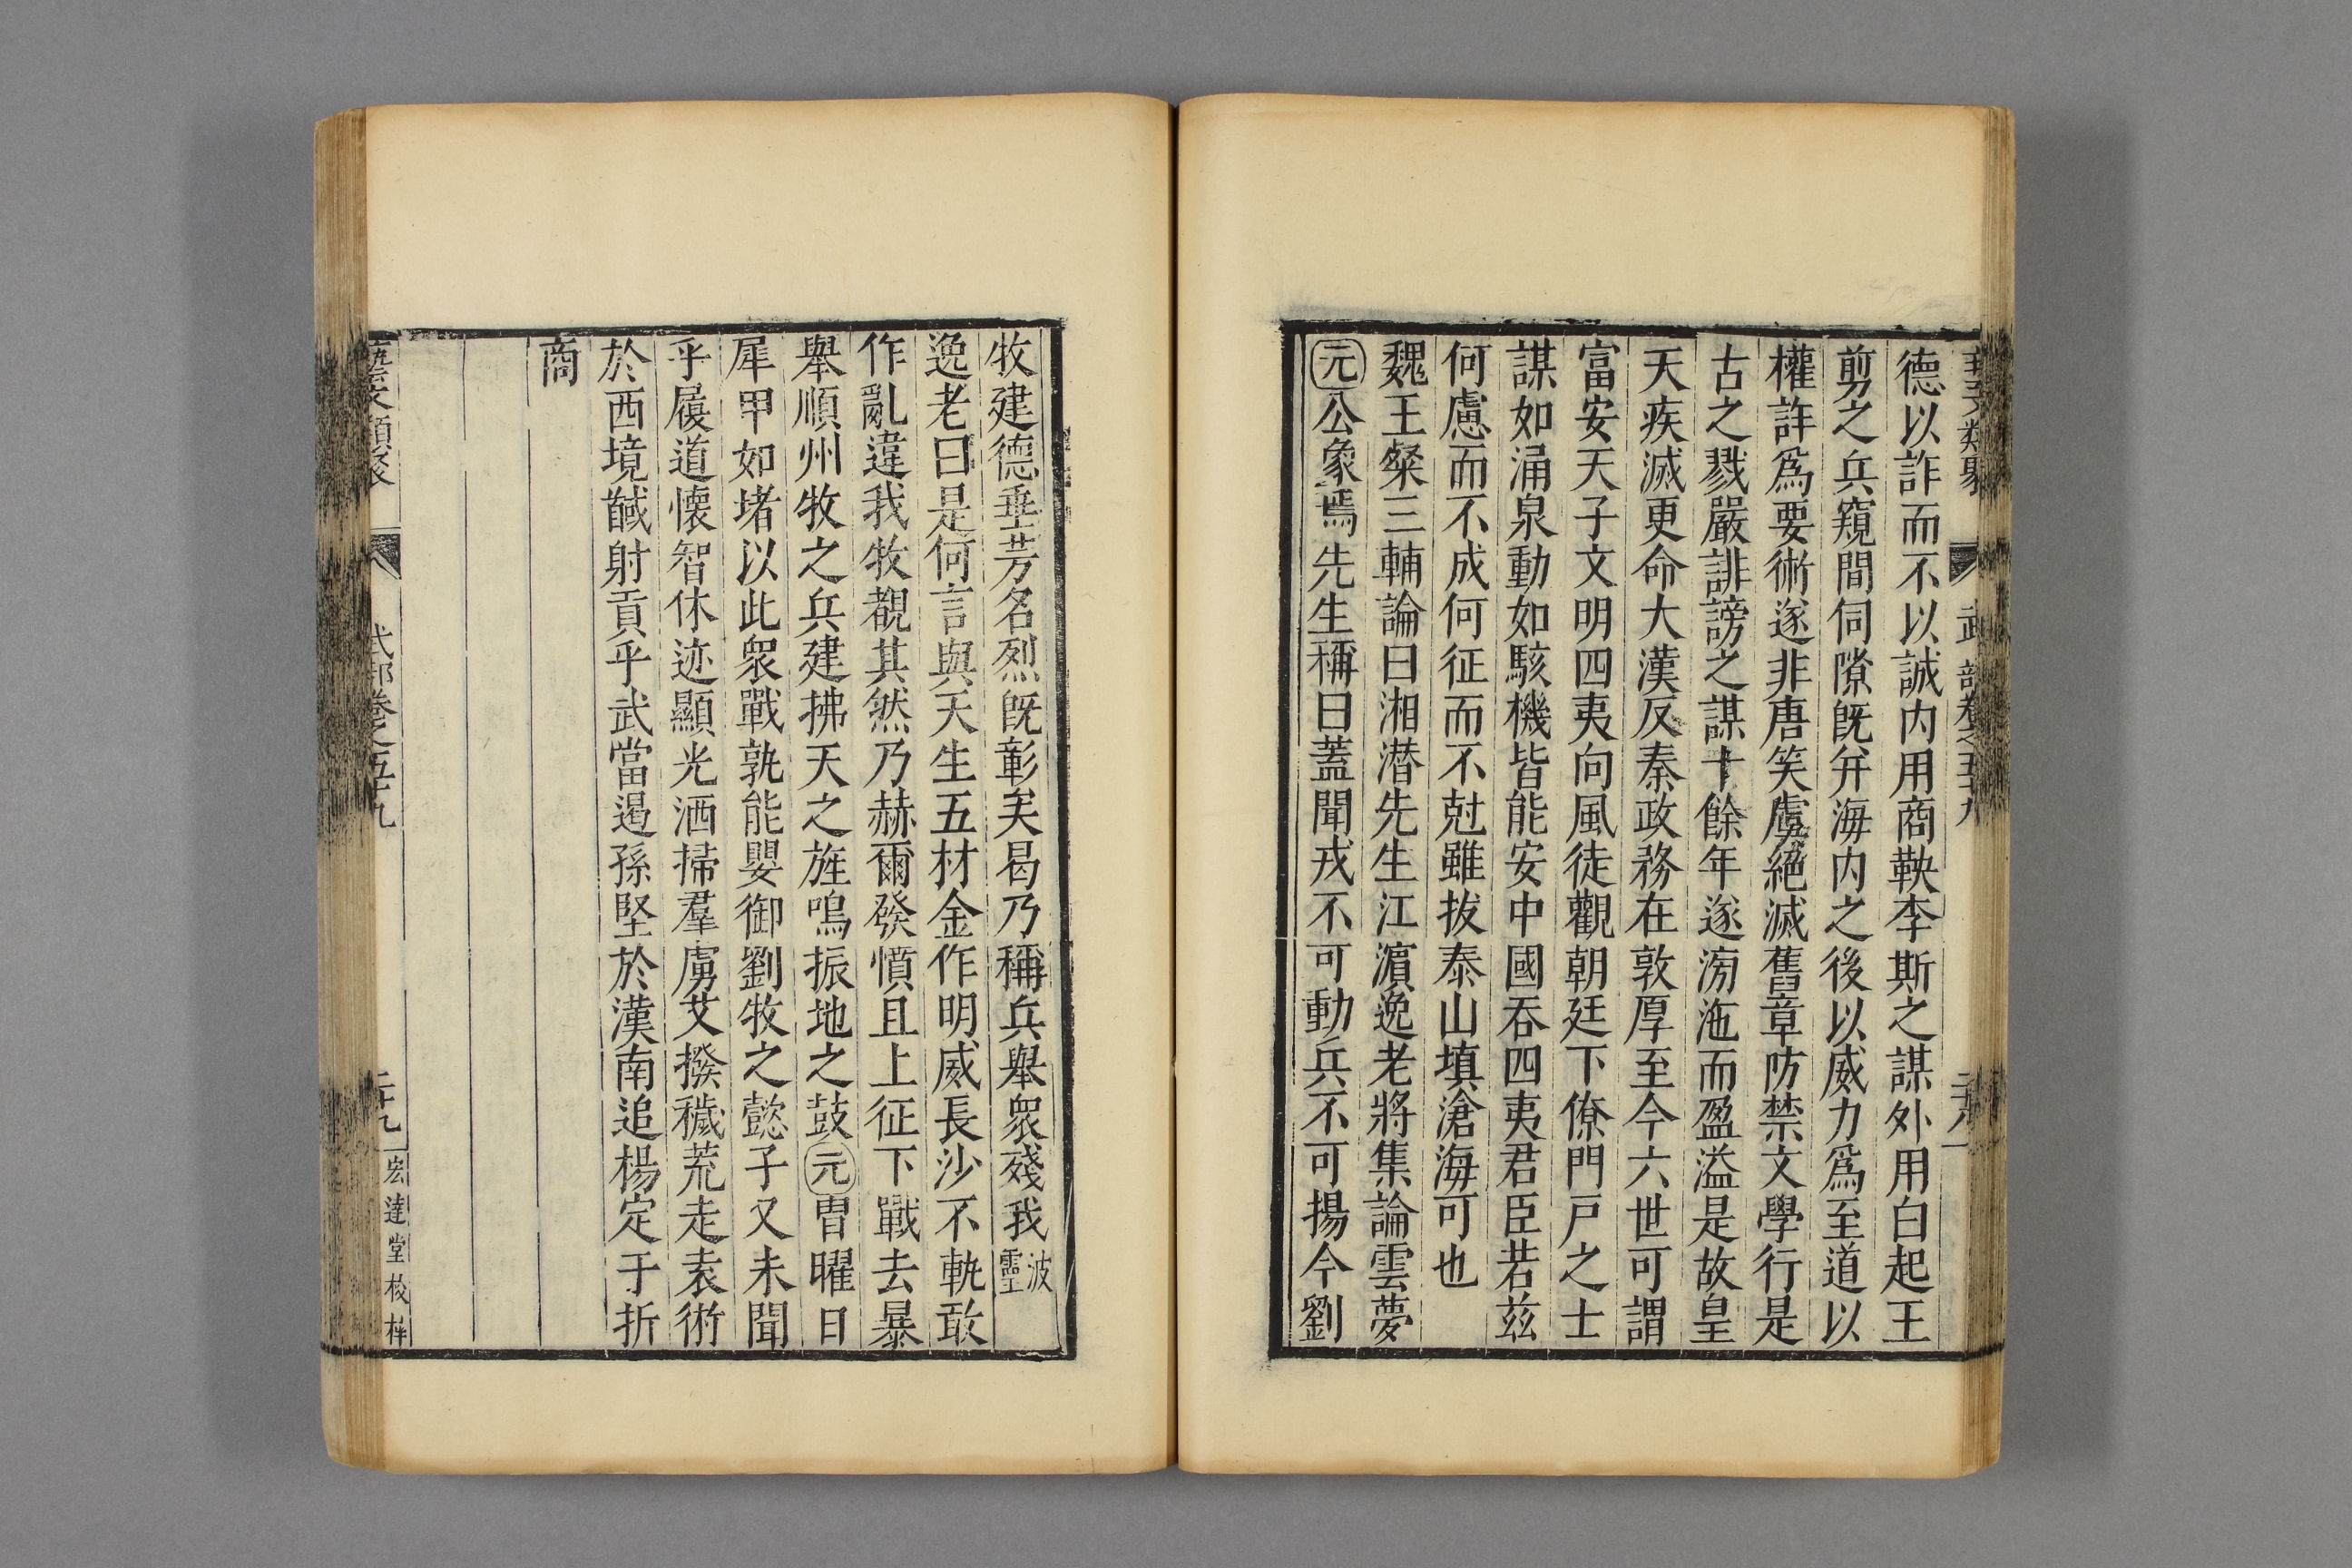 德以詐而不以誠内用商鞅李斯之謀外用白起王
剪之兵窺間伺隙既幷海内之後以威力爲至道以
權詐爲要術遂非唐笑虞絕滅舊章防禁文學行是
古之戮嚴誹謗之謀十餘年遂滂沲而盈溢是故皇
天疾滅更命大漢反秦政務在敦厚至今六世可謂
富安天子文明四夷向風徒觀朝廷下僚門戸之士
謀如涌泉動如駭機皆能安中國吞四夷君臣若兹
何慮而不成何征而不尅雖拔泰山填滄海可也
魏王粲三輔論曰湘潜先生江濵逸老將集論雲夢
元公象焉先生稱曰蓋聞戎不可動兵不可揚今劉
牧建德垂芳名烈既彰矣曷乃稱兵舉衆殘我波靈
逸老曰是何言與天生五材金作明威長沙不軌敢
作亂違我牧覩其然乃赫爾發憤且上征下戰去暴
舉順州牧之兵建拂天之旌鳴振地之鼓元胄曜日
犀甲如堵以此衆戰孰能嬰御劉牧之懿子又未聞
乎履道懷智休迹顯光洒掃羣虜艾撥穢荒走袁術
於西境馘射貢乎武當遏孫堅於漢南追楊定于折
商
藝文類聚 武部卷之五十九 二十九 宏達堂校梓